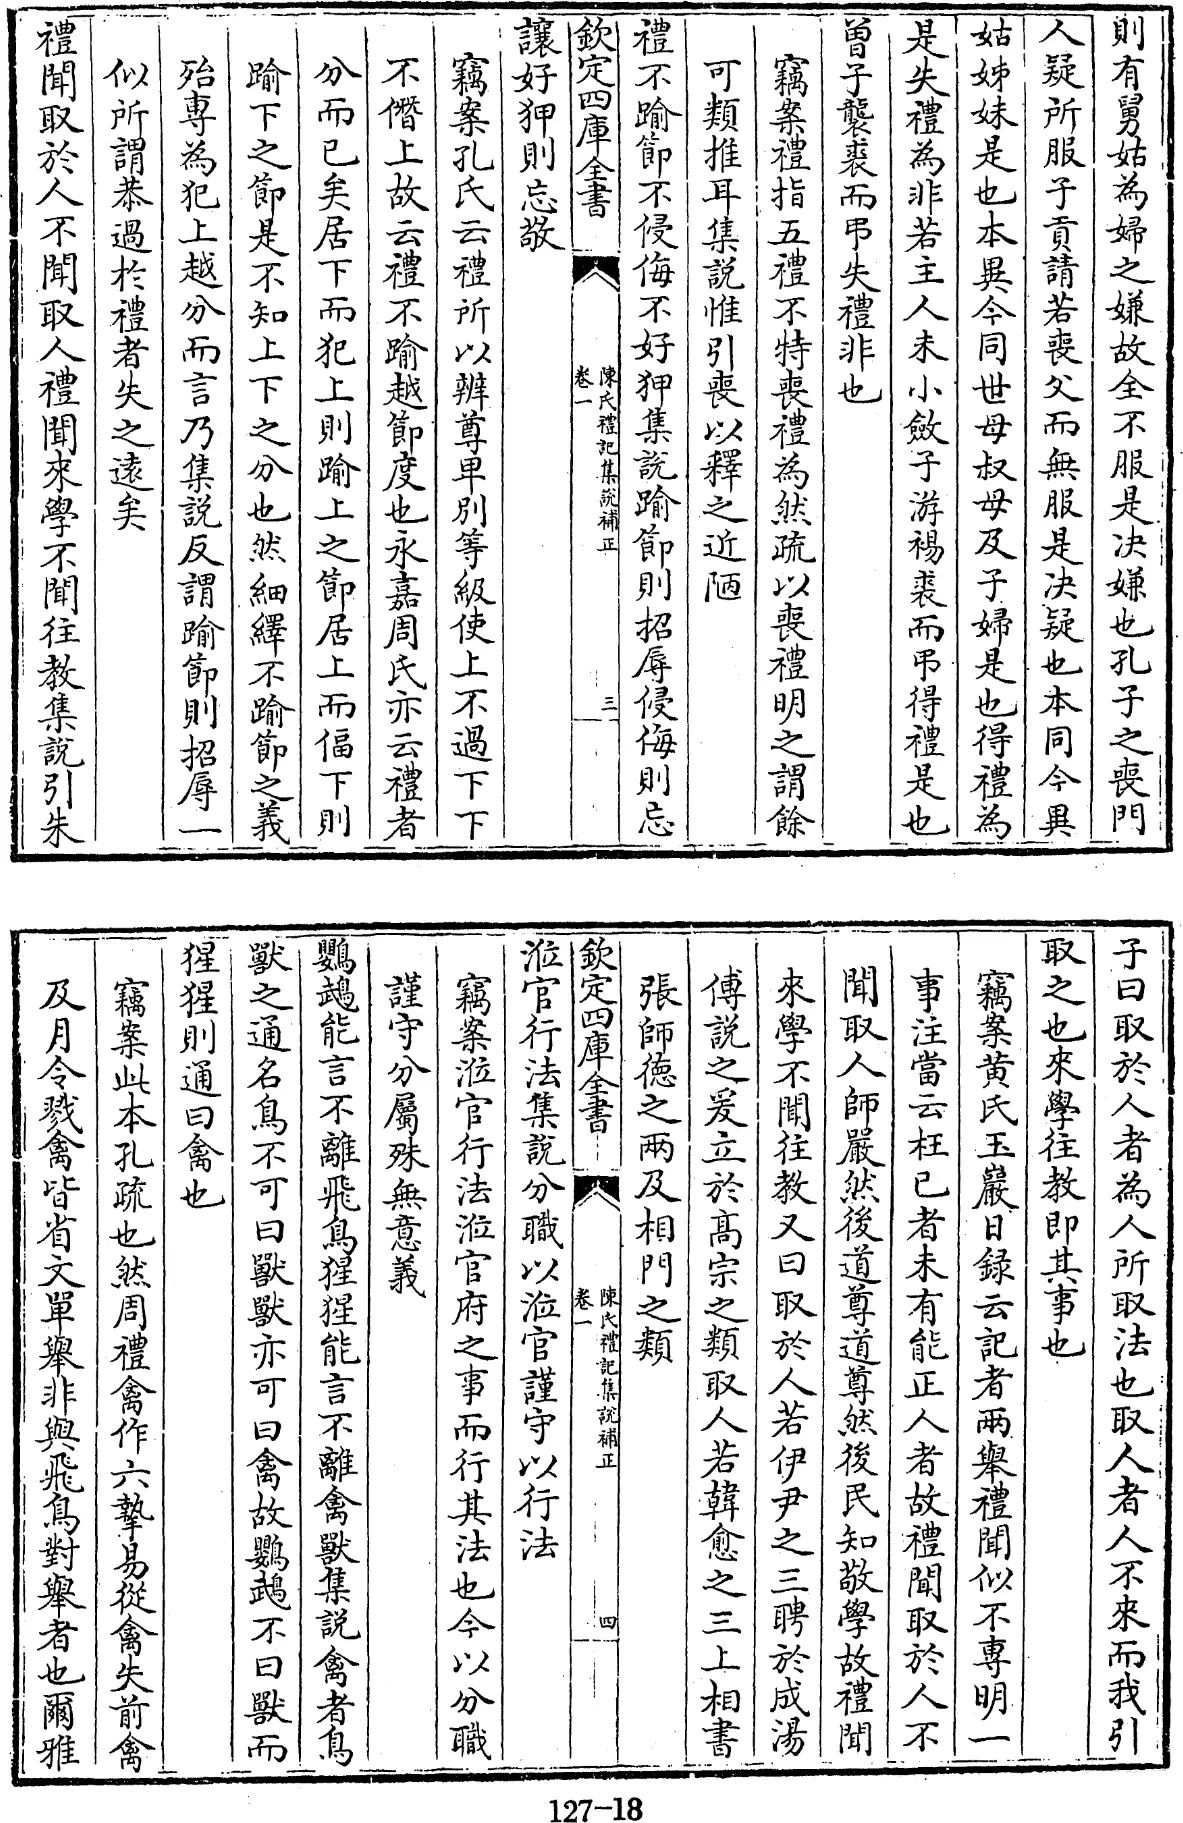 則有舅姑為婦之嫌故全不服是决嫌也孔子之喪門
人疑所服子貢請若喪父而無服是决疑也本同今異
姑姊妹是也本異今同世母叔母及子婦是也得禮為
是失禮為非若主人未小斂子游裼裘而弔得禮是也
曽子襲裘而弔失禮非也
竊案禮指五禮不特喪禮為然疏以喪禮明之謂餘
可類推耳集説惟引喪以釋之近陋
禮不踰節不侵侮不好狎集説踰節則招辱侵侮則忘
欽定四庫全書
陳氏禮記集説補正
卷一
三
讓好狎則忘敬
竊案孔氏云禮所以辨尊卑别等級使上不逼下下
不僭上故云禮不踰越節度也永嘉周氏亦云禮者
分而已矣居下而犯上則踰上之節居上而偪下則
踰下之節是不知上下之分也然細繹不踰節之義
殆専為犯上越分而言乃集説反謂踰節則招辱一
似所謂恭過於禮者失之遠矣
禮聞取於人不聞取人禮聞來學不聞往教集説引朱
子曰取於人者為人所取法也取人者人不來而我引
取之也來學往教即其事也
竊案黄氏玉巖日録云記者兩舉禮聞似不専明一
事注當云枉已者未有能正人者故禮聞取於人不
聞取人師嚴然後道尊道尊然後民知敬學故禮聞
來學不聞往教又曰取於人若伊尹之三聘於成湯
傅説之爰立於髙宗之類取人若韓愈之三上相書
張師德之兩及相門之類
欽定四庫全書
陳氏禮記集説補正
卷一
四
涖官行法集説分職以涖官謹守以行法
竊案涖官行法涖官府之事而行其法也今以分職
謹守分屬殊無意義
鸚鵡能言不離飛鳥猩猩能言不離禽獸集説禽者鳥
獸之通名鳥不可曰獸獸亦可曰禽故鸚鵡不曰獸而
猩猩則通曰禽也
竊案此本孔疏也然周禮禽作六摯易從禽失前禽
及月令戮禽皆省文單舉非與飛鳥對舉者也爾雅
127-18